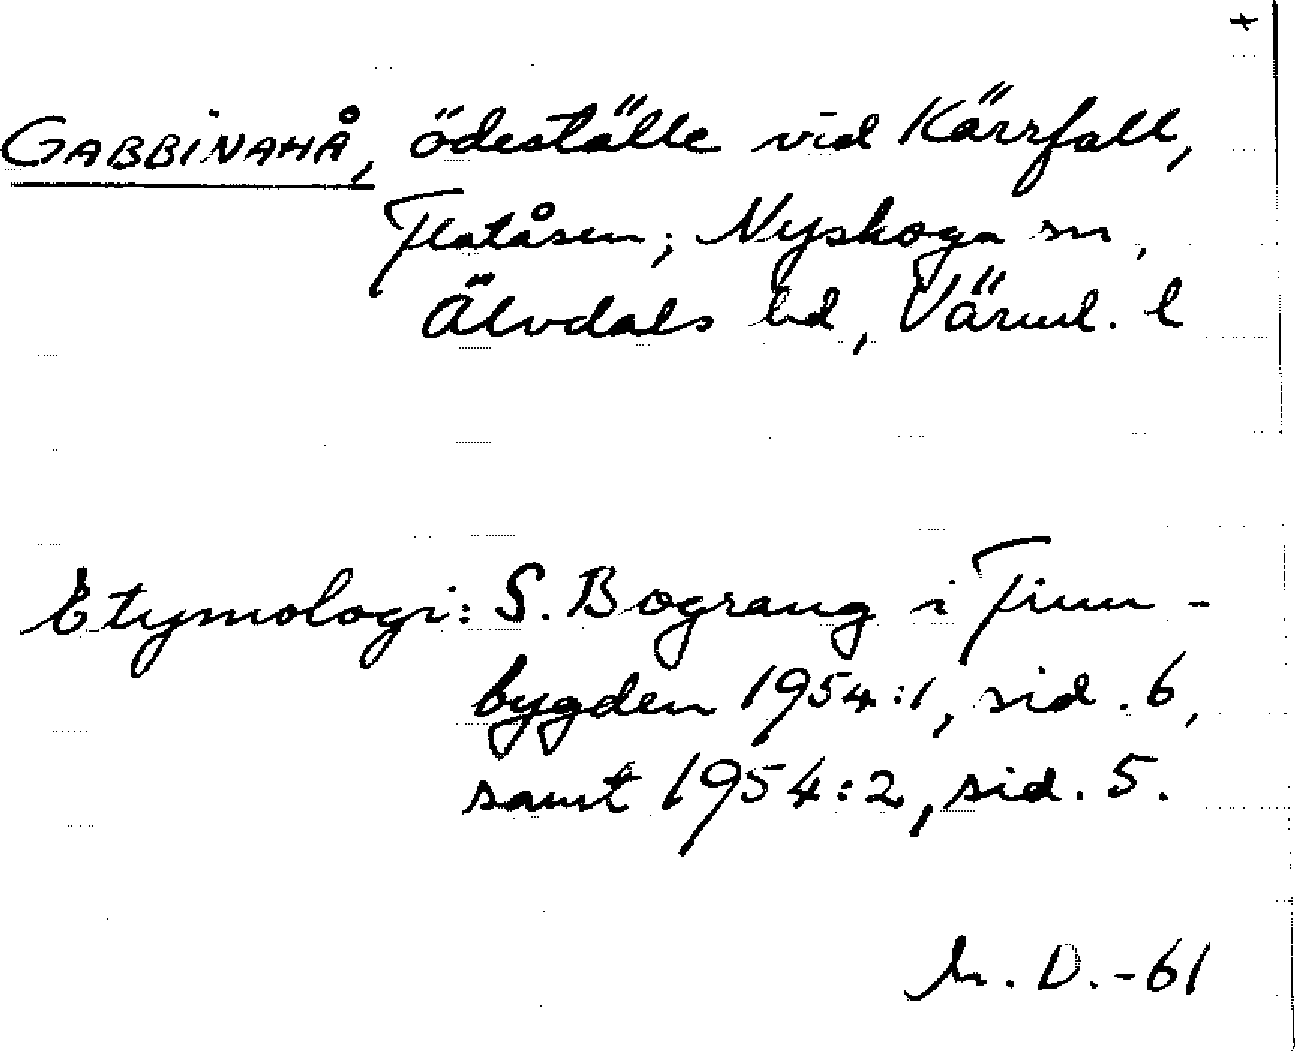 GABBINAHÅ, ödeställe vid Kärrfall,
Flatåsen, Nyskoga sn,
Älvdals hd, Värml. l
Etymologi: S. Bograng i Finn-
bygden 1954:1, sid. 6,
samt 1954:2, sid. 5.
D. -61